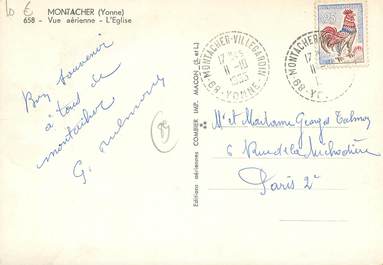 10 €
MONTACHER (Yonne)
658 - Vue aérienne - L'Eglise
Bon souvenir
à tous de
montacher
G.
89
Editions aériennes COMBIER IMP. MACON (S.-et-L.)
MONTACHER-VILLEGARDIN
17 H 45
11-10
YONNE
0,25
17
11
89-MONTACHER
Mr et Madame Georges Talmon
6 Rue de la Michodière
Paris 2e